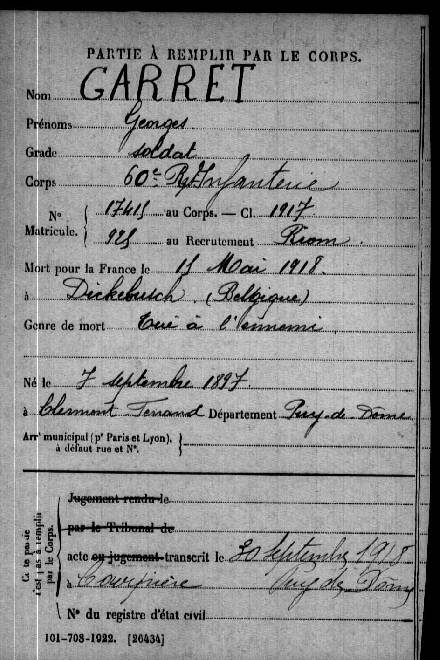 PARTIE À REMPLIR PAR LE CORPS.
Nom GARRET
Prénoms Georges
Grade soldat
Corps 60e Rgt Infanterie
N° Matricule. { 17415 au Corps. — Cl. 1917
925 au Recrutement Riom.
Mort pour la France le 15 Mai 1918.
à Dickebusch (Belgique)
Genre de mort Tué à l'ennemi
Né le 7 septembre 1897.
à Clermont Ferrand Département Puy-de-Dôme
Arrt municipal (pr Paris et Lyon),
à défaut rue et N°.
Cette partie n'est pas à remplir par le Corps.
Jugement rendu le
par le Tribunal de
acte ou jugement transcrit le 30 Septembre 1918
à Courpière Puy de Dôme
N° du registre d'état civil
101-708-1922. [26434]